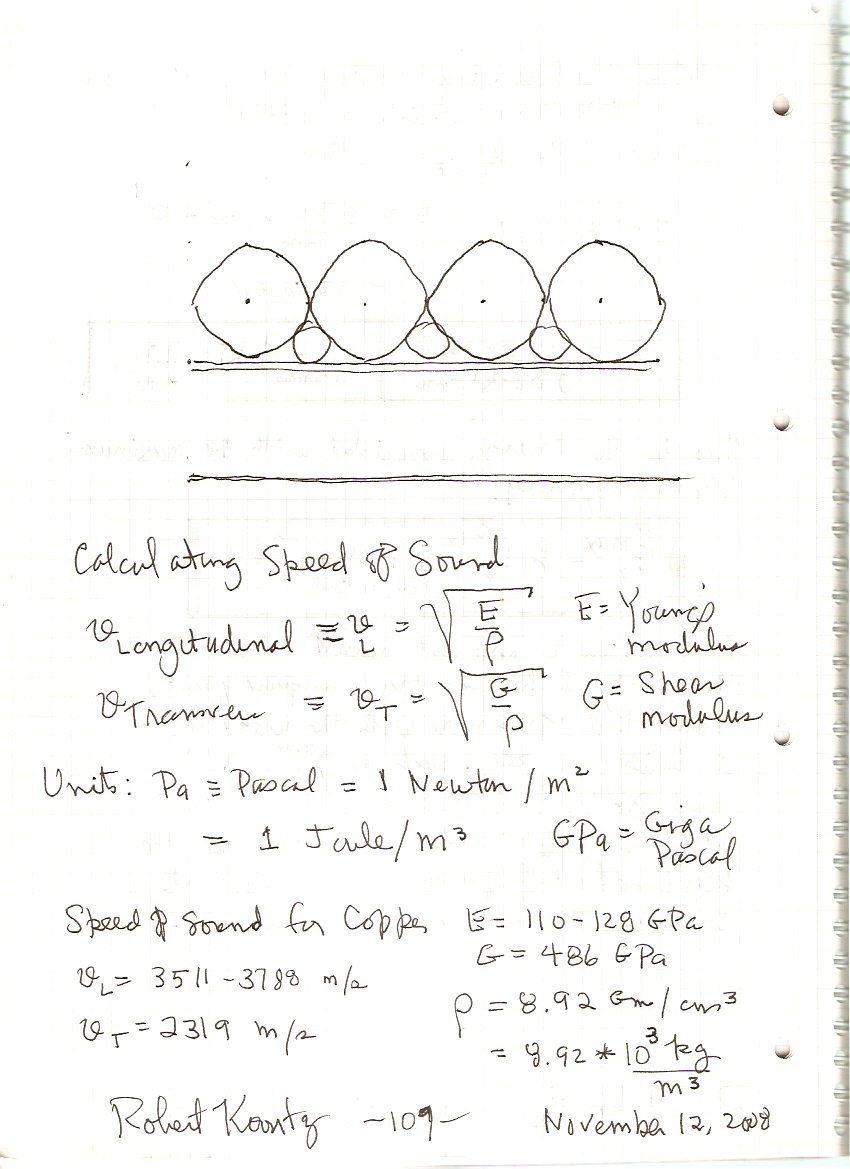 Calculating Speed of Sound
v Longitudinal ≡ v L = √(E/ρ) E = Young's modulus
v Transver ≡ v T = √(G/ρ) G = Shear modulus
Units: Pa ≡ Pascal = 1 Newton / m²
= 1 Joule/m³ GPa = Giga Pascal
Speed of Sound for Copper E = 110-128 GPa
G = 486 GPa
v L = 3511-3788 m/s
ρ = 8.92 Gm/cm³
v T = 2319 m/s
= 8.92 * 10³ kg/m³
Robert Koontz -109- November 12, 2008